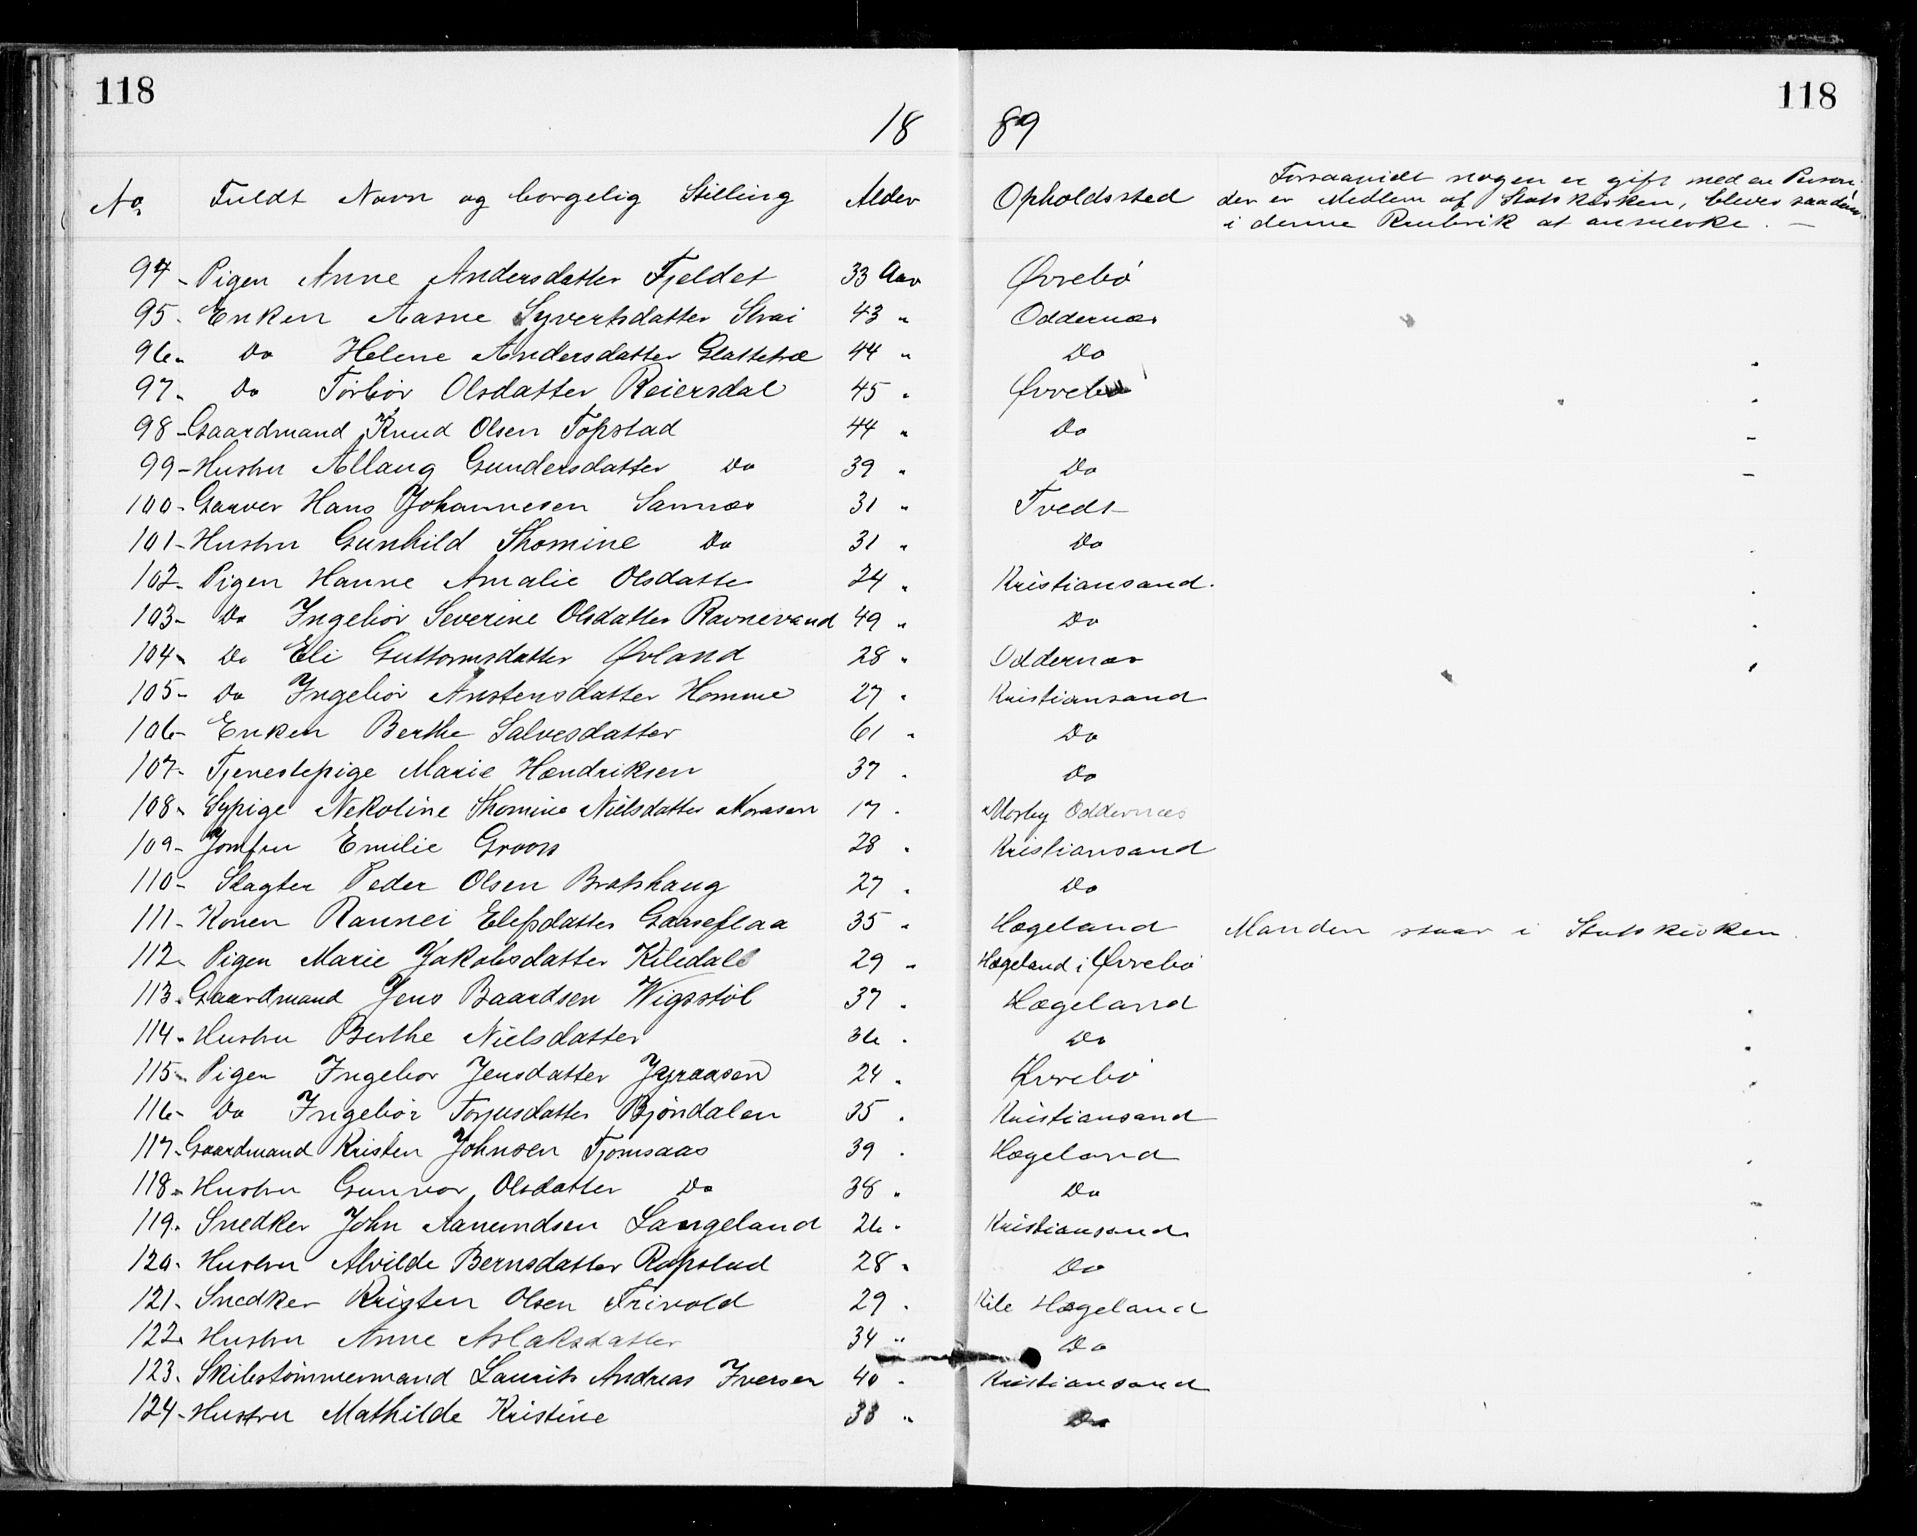 118 118
18 89
No Fuldt Navn og borgelig Stilling Alder Opholdssted Forsaavidt nogen er gift med en Person
der er Medlem af Statskirken, bliver saadan
i denne Rubrik at anmerke. —
94 - Pigen Anne Andersdatter Fjeldet 33 Aar Øvrebö
95. Enken Aasne Syvertsdatter Strai 43 " Oddernæs
96. Do Helene Andersdatter Glattetræ 44 " Do
97. Do Törbör Olsdatter Reiersdal 45 " Øvrebö
98 - Gaardmand Knud Olsen Topstad 44 " Do
99 - Hustru Allaug Gundersdatter Do 39 " Do
100 - Garver Hans Johannesen Sannæs 31 " Tvedt
101 - Hustru Gunhild Thomine Do 31 " Do
102 - Pigen Hanne Amalie Olsdatter 24 " Kristiansand.
103 - Do Ingebör Severine Olsdatter Ravnevand 49 " Do
104 - Do Eli Guttormsdatter Øvland 28 " Oddernæs
105 - Do Ingebör Anstensdatter Homme 27 " Kristiansand
106 - Enken Berthe Salvesdatter 61 " Do
107 - Tjenestepige Marie Hendriksen 37 " Do
108 - Sypige Nekoline Thomine Nielsdatter 17 " Mosby Oddernæs
109 - Jomfru Emilie Groos 28 " Kristiansand
110 - Slagter Peder Olsen Bratshaug 27 " Do
111 - Konen Rannei Elefsdatter Gaaseflaa 35 " Hægeland Manden staar i Statskirken.
112 - Pigen Marie Jakobsdatter Kiledal 29 " Hægeland i Øvrebö
113. Gaardmand Jens Baardsen Wigsstöl 37 " Hægeland
114. Hustru Berthe Nielsdatter 36 " Do
115 - Pigen Ingebor Jensdatter 24 " Øvrebö
116 - Do Ingebör Torjusdatter Bjöndalen 35 " Kristiansand
117 - Gaardmand Kristen Johnsen Tjomsaas 39 " Hægeland
118 - Hustru Gunvor Olsdatter Do 38 " Do
119. Snedker John Aanundsen Langeland 26 " Kristiansand
120. Hustru Alvilde Bernsdatter Ropstad 28 " Do
121. Snedker Kristen Olsen Frivold 29 " Kile Hægeland
122. Hustru Anne Aslaksdatter 34 " Do
123. Skibstömmermand Laurits Andreas Iversen 40 " Kristiansand
124 - Hustru Mathilde Kristine 38 " Do